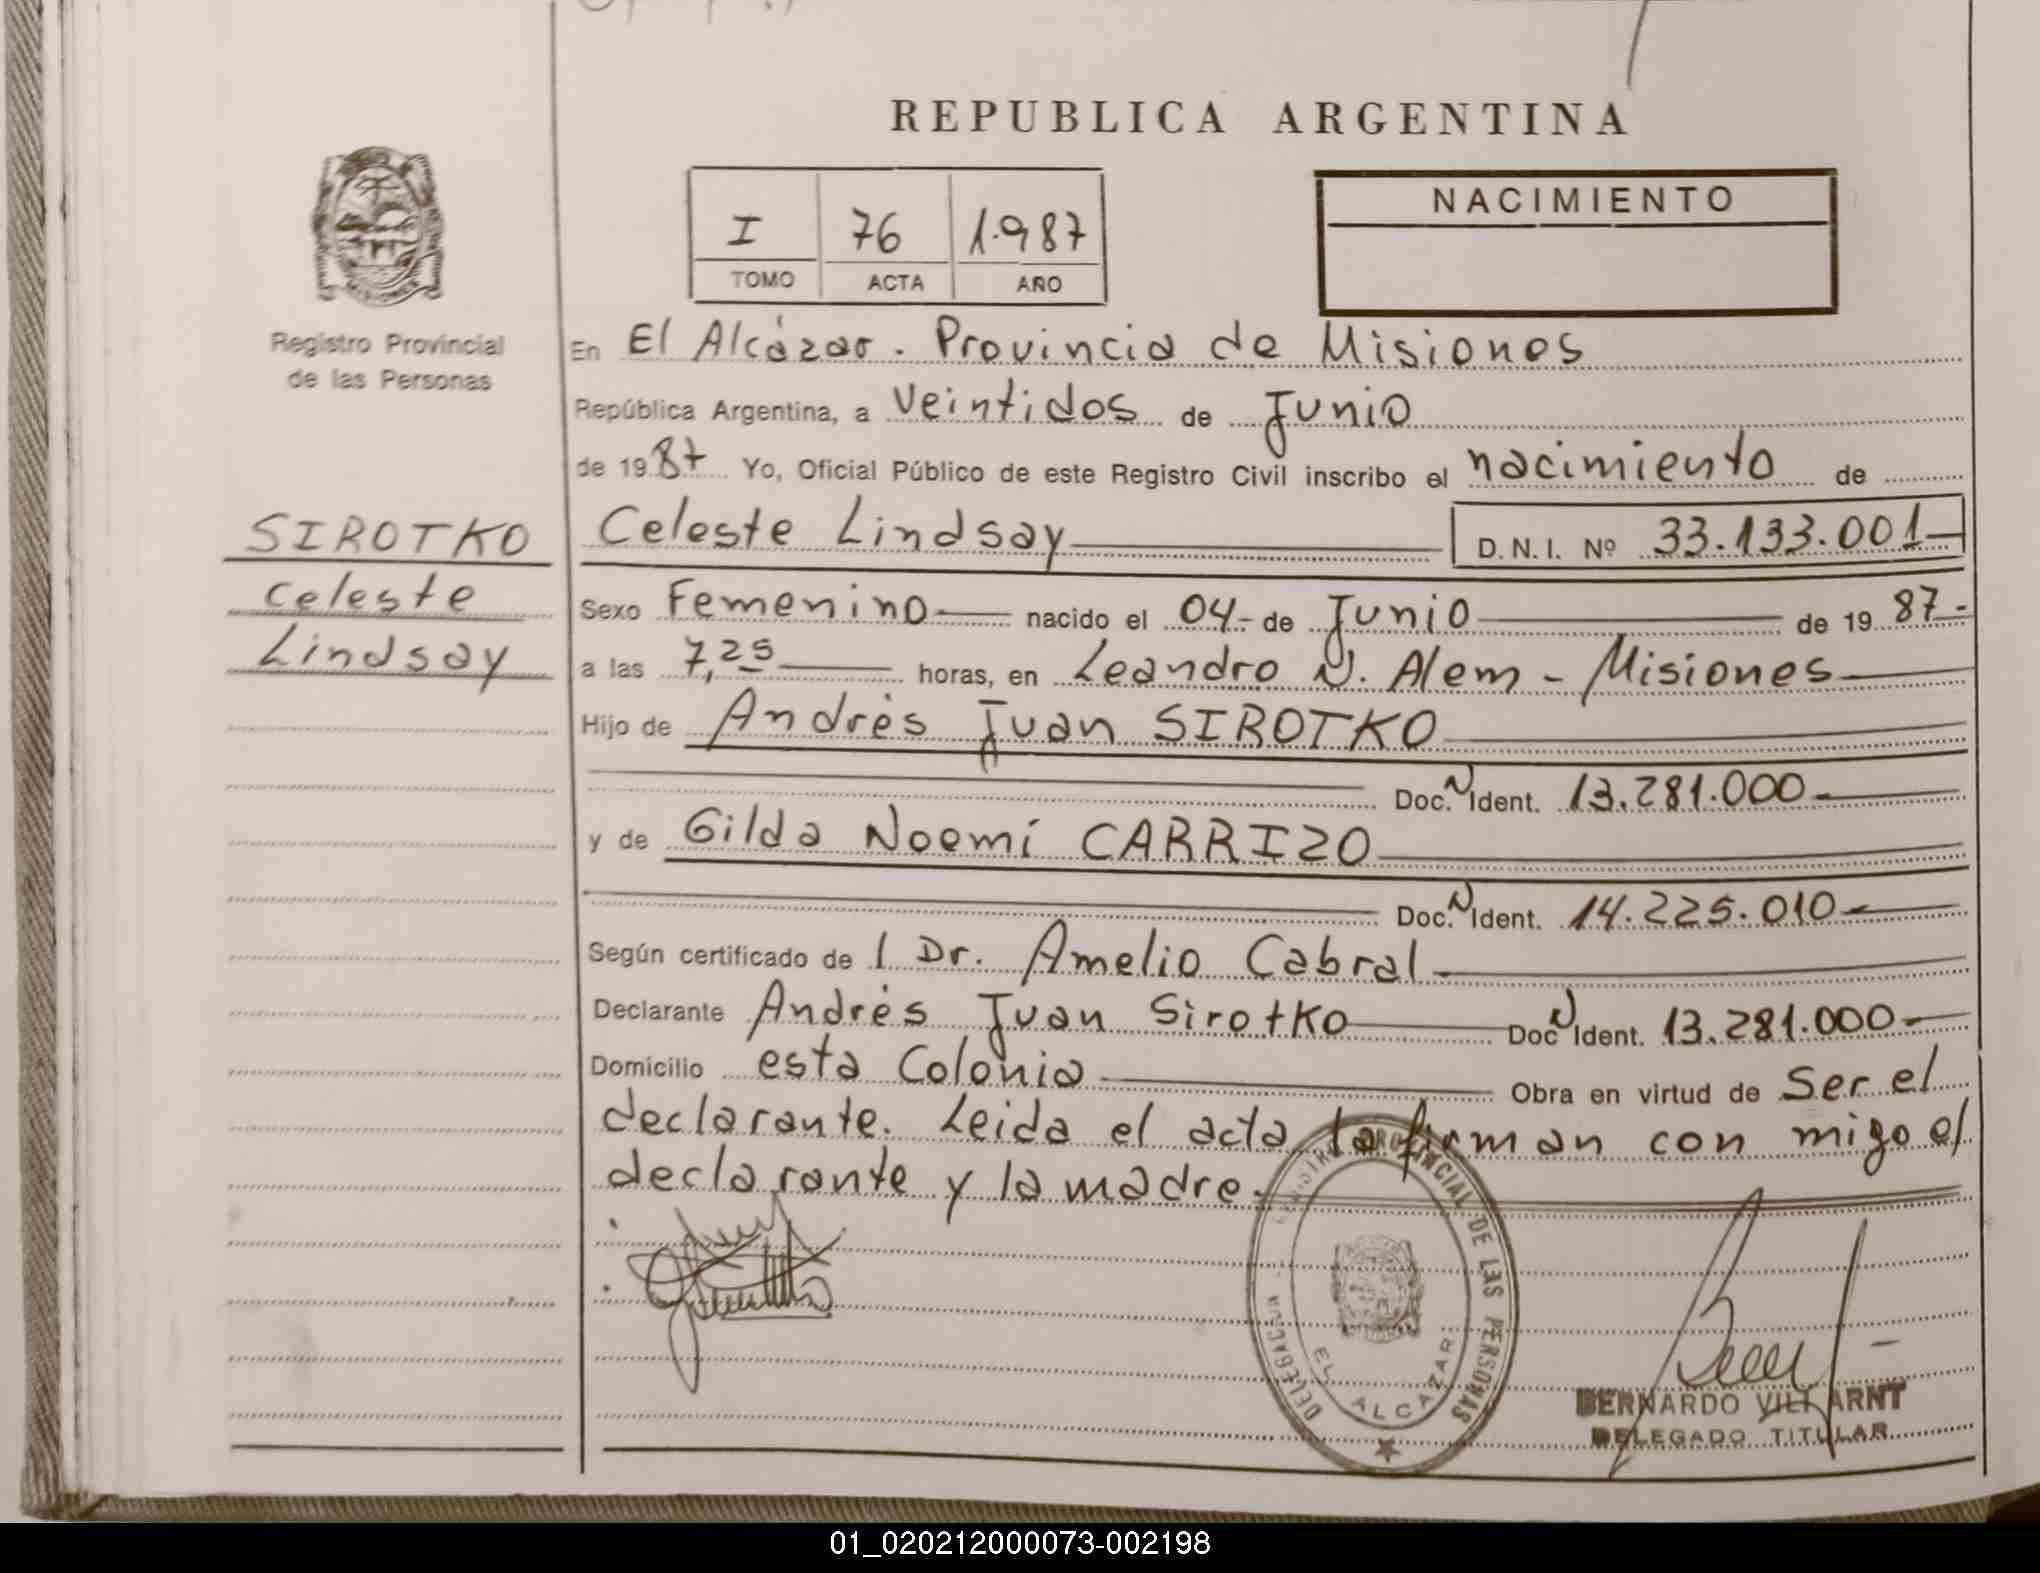 REPUBLICA ARGENTINA
MISIONES
Registro Provincial
de las Personas
I 76 1.987
TOMO ACTA AÑO
NACIMIENTO
En El Alcázar. Provincia de Misiones
República Argentina, a Veintidos de Junio
de 1987 Yo, Oficial Público de este Registro Civil inscribo el nacimiento de
SIROTKO
Celeste
Lindsay
Celeste Lindsay D.N.I. Nº 33.133.001
Sexo Femenino nacido el 04 - de Junio de 1987 -
a las 7,25 horas, en Leandro N. Alem - Misiones
Hijo de Andrés Juan SIROTKO
Doc. N Ident. 13.281.000 -
y de Gilda Noemí CARRIZO
Doc. N Ident. 14.225.010 -
Según certificado de l Dr. Amelio Cabral
Declarante Andrés Juan Sirotko Doc N Ident. 13.281.000 -
Domicilio esta Colonia Obra en virtud de Ser el
declarante. Leida el acta la firman con migo el
declarante y la madre.
REGISTRO PROVINCIAL DE LAS PERSONAS
DELEGACION
EL ALCAZAR
BERNARDO VILLARNT
DELEGADO TITULAR
01_020212000073-002198